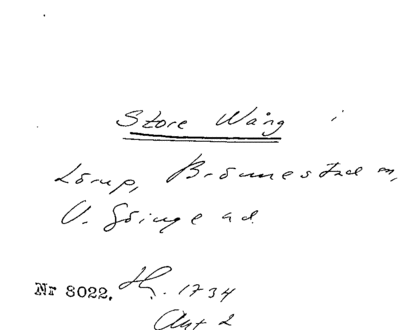 Store Wång i
Lörup, Brönnestad sn,
V. Göinge hd.
Nr 8022. 1734
Akt 2